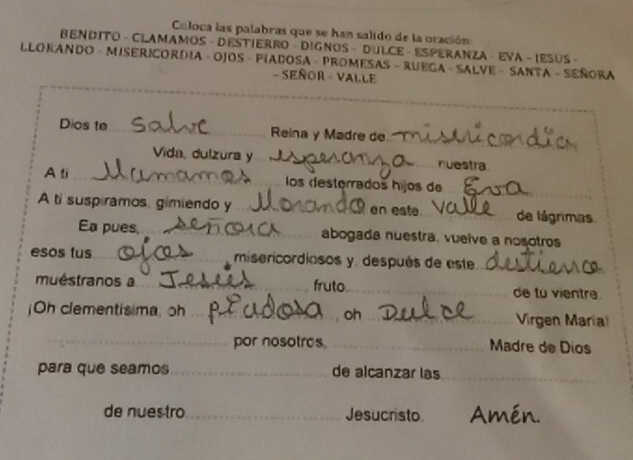 Coloca las palabras que se han salido de la oración:
BENDITO - CLAMAMOS - DESTIERRO - DIGNOS - DULCE - ESPERANZA - EVA - JESÚS -
LLORANDO - MISERICORDIA - OJOS - PIADOSA - PROMESAS - RUEGA - SALVE - SANTA - SEÑORA
- SEÑOR - VALLE
Dios te salve Reina y Madre de misericordia
Vida, dulzura y esperanza nuestra.
A ti llamamos los desterrados hijos de Eva
A ti suspiramos, gimiendo y llorando en este valle de lágrimas.
Ea pues, señora abogada nuestra, vuelve a nosotros
esos tus ojos misericordiosos y, después de este destierro
muéstranos a Jesús fruto de tu vientre.
¡Oh clementísima, oh piadosa, oh Dulce Virgen María!
por nosotros, Madre de Dios
para que seamos de alcanzar las
de nuestro Jesucristo. Amén.